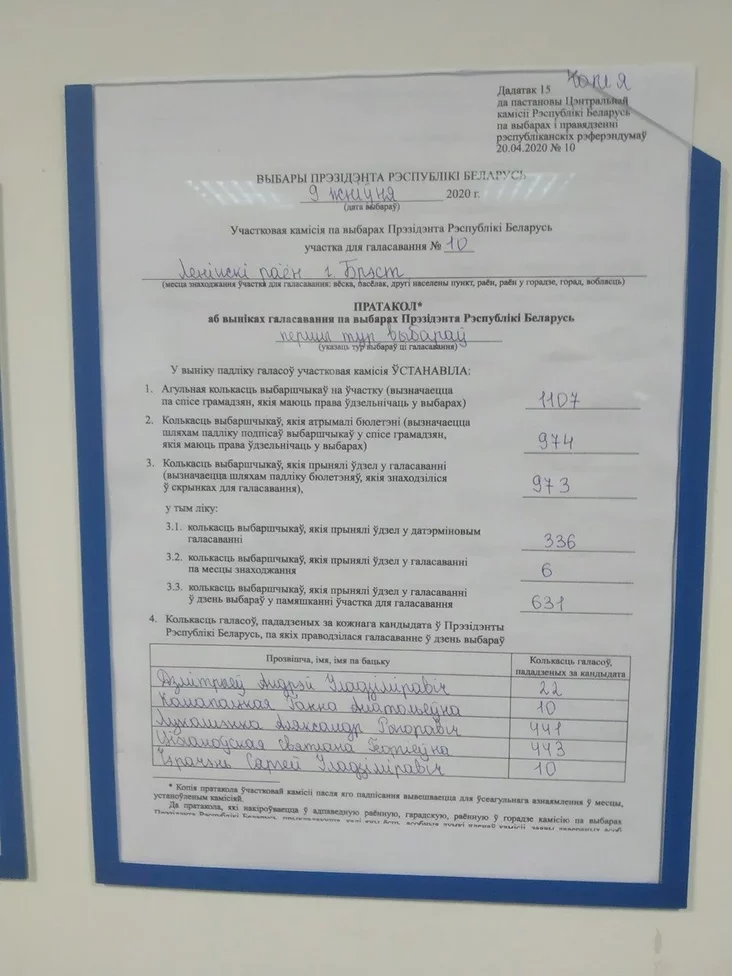 Копія
Дадатак 15
да пастановы Цэнтральнай
камісіі Рэспублікі Беларусь
па выбарах і правядзенні
рэспубліканскіх рэферэндумаў
20.04.2020 № 10
ВЫБАРЫ ПРЭЗІДЭНТА РЭСПУБЛІКІ БЕЛАРУСЬ
9 жніўня 2020 г.
(дата выбараў)
Участковая камісія па выбарах Прэзідэнта Рэспублікі Беларусь
участка для галасавання № 10
Ленінскі раён г Брэст
(месца знаходжання ўчастка для галасавання: вёска, пасёлак, другі населены пункт, раён, раён у горадзе, горад, вобласць)
ПРАТАКОЛ*
аб выніках галасавання па выбарах Прэзідэнта Рэспублікі Беларусь
першы тур выбараў
(указаць тур выбараў ці галасавання)
У выніку падліку галасоў участковая камісія ЎСТАНАВІЛА:
1. Агульная колькасць выбаршчыкаў на ўчастку (вызначаецца
па спісе грамадзян, якія маюць права ўдзельнічаць у выбарах) 1107
2. Колькасць выбаршчыкаў, якія атрымалі бюлетэні (вызначаецца
шляхам падліку подпісаў выбаршчыкаў у спісе грамадзян,
якія маюць права ўдзельнічаць у выбарах) 974
3. Колькасць выбаршчыкаў, якія прынялі ўдзел у галасаванні
(вызначаецца шляхам падліку бюлетэняў, якія знаходзіліся
ў скрынках для галасавання), 973
у тым ліку:
3.1. колькасць выбаршчыкаў, якія прынялі ўдзел у датэрміновым
галасаванні 336
3.2. колькасць выбаршчыкаў, якія прынялі ўдзел у галасаванні
па месцы знаходжання 6
3.3. колькасць выбаршчыкаў, якія прынялі ўдзел у галасаванні
ў дзень выбараў у памяшканні ўчастка для галасавання 631
4. Колькасць галасоў, пададзеных за кожнага кандыдата ў Прэзідэнты
Рэспублікі Беларусь, па якіх праводзілася галасаванне ў дзень выбараў
Прозвішча, імя, імя па бацьку Колькасць галасоў,
пададзеных за кандыдата
Дзмітрыеў Андрэй Уладзіміравіч 22
Канапацкая Ганна Анатольеўна 10
Лукашэнка Аляксандр Рыгоравіч 441
Ціханоўская Святлана Георгіеўна 443
Чэрачэнь Сяргей Уладзіміравіч 10
* Копія пратакола ўчастковай камісіі пасля яго падпісання вывешваецца для ўсеагульнага азнаямлення ў месцы,
устаноўленым камісіяй.
Да пратакола, які накіроўваецца ў адпаведную раённую, гарадскую, раённую ў горадзе камісію па выбарах
Прэзідэнта Рэспублікі Беларусь,